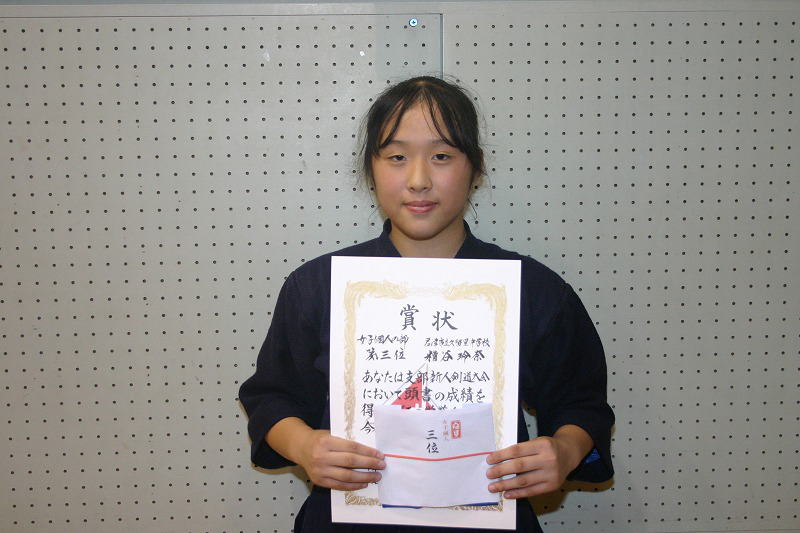 賞状
女子個人の部 君津市立久留里中学校
第三位 稽谷玲奈
あなたは支部新人剣道大会
において頭書の成績を
得
今
女子個人
三位